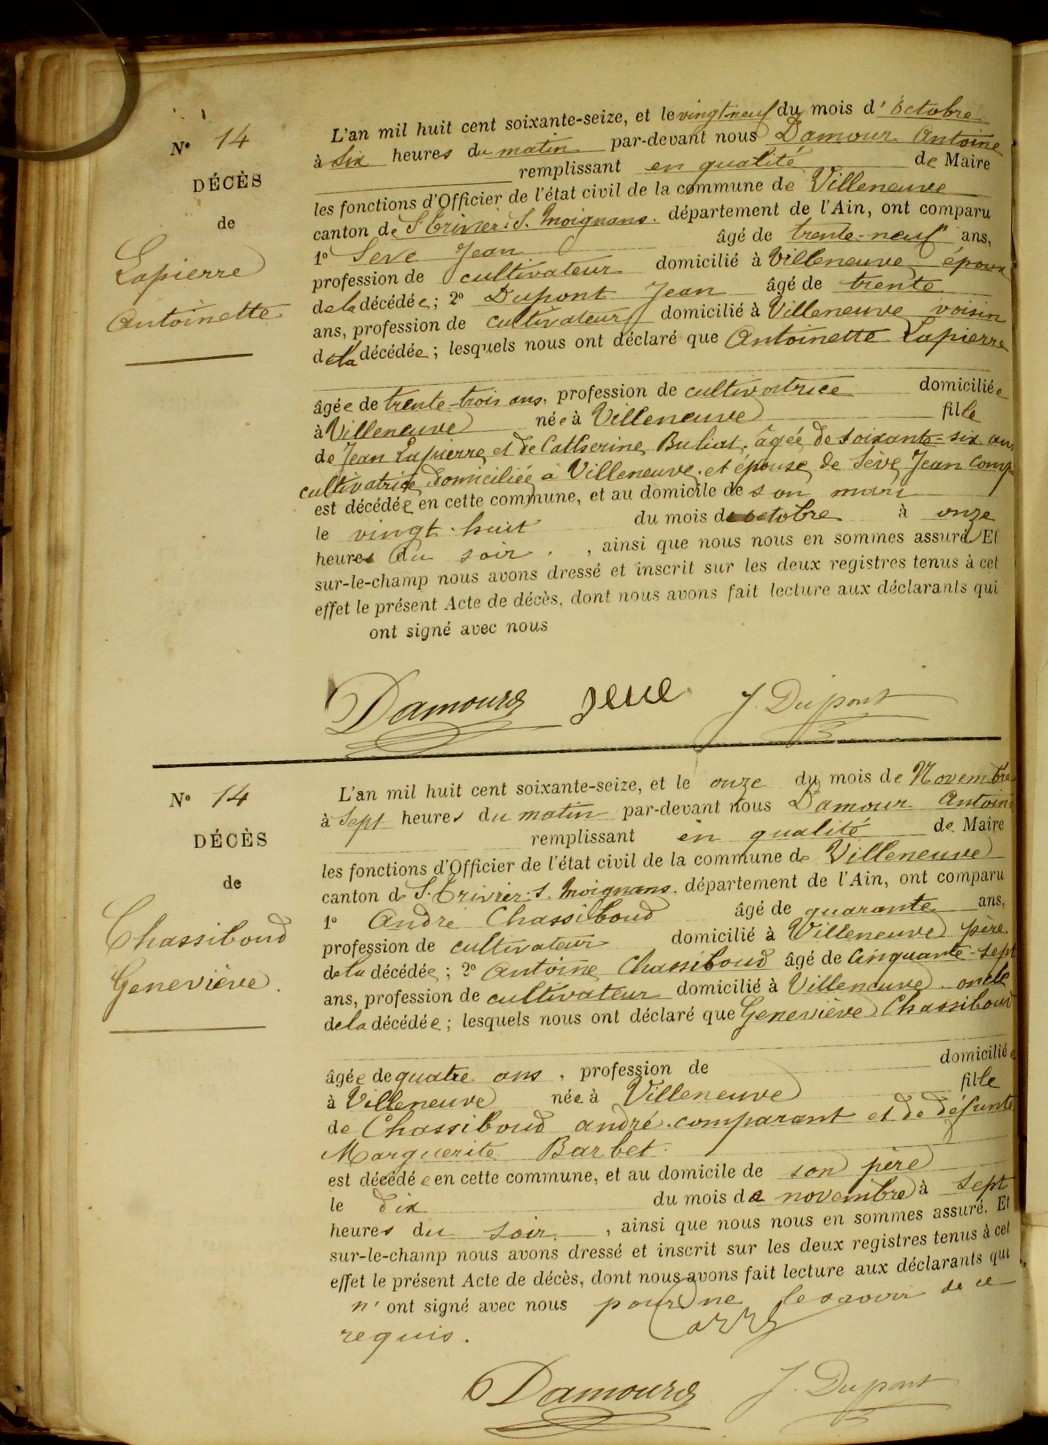 N° 14
DÉCÈS
de
Lapierre
Antoinette
L'an mil huit cent soixante-seize, et le vingt-neuf du mois d'octobre
à six heures du matin par-devant nous Damour Antoine
remplissant en qualité de Maire
les fonctions d'Officier de l'état civil de la commune de Villeneuve
canton de St Trivier S. Moignans. département de l'Ain, ont comparu
1° Seve Jean âgé de trente-neuf ans,
profession de cultivateur domicilié à Villeneuve, époux
de la décédée; 2° Dupont Jean âgé de trente
ans, profession de cultivateur domicilié à Villeneuve voisin
de la décédée; lesquels nous ont déclaré que Antoinette Lapierre
âgée de trente-trois ans, profession de cultivatrice domiciliée
à Villeneuve née à Villeneuve fille
de Jean Lapierre et de Catherine âgée de soixante-six ans
cultivatrice domiciliée à Villeneuve, et épouse de Sève Jean comp
est décédée en cette commune, et au domicile de son mari
le vingt-huit du mois de octobre à onze
heures du soir, ainsi que nous nous en sommes assuré. Et
sur-le-champ nous avons dressé et inscrit sur les deux registres tenus à cet
effet le présent Acte de décès, dont nous avons fait lecture aux déclarants qui
ont signé avec nous
Damour Seve J. Dupont
N° 14
DÉCÈS
de
Chassiboud
Geneviève.
L'an mil huit cent soixante-seize, et le onze du mois de Novembre
à Sept heures du matin par-devant nous Damour Antoine
remplissant en qualité de Maire
les fonctions d'Officier de l'état civil de la commune de Villeneuve
canton de S. Trivier S. Moignans. département de l'Ain, ont comparu
1° André Chassiboud âgé de quarante ans,
profession de cultivateur domicilié à Villeneuve père
de la décédée; 2° Antoine Chassiboud âgé de Cinquante-sept
ans, profession de cultivateur domicilié à Villeneuve oncle
de la décédée; lesquels nous ont déclaré que Geneviève Chassiboud
âgée de quatre ans, profession de domiciliée
à Villeneuve née à Villeneuve fille
de Chassiboud andré comparant et de défunte
Marguerite Barbet
est décédée en cette commune, et au domicile de son père
le dix du mois de novembre à sept
heures du soir, ainsi que nous nous en sommes assuré. Et
sur-le-champ nous avons dressé et inscrit sur les deux registres tenus à cet
effet le présent Acte de décès, dont nous avons fait lecture aux déclarants qui
n'ont signé avec nous pour ne le savoir de ce
requis.
Damour J. Dupont